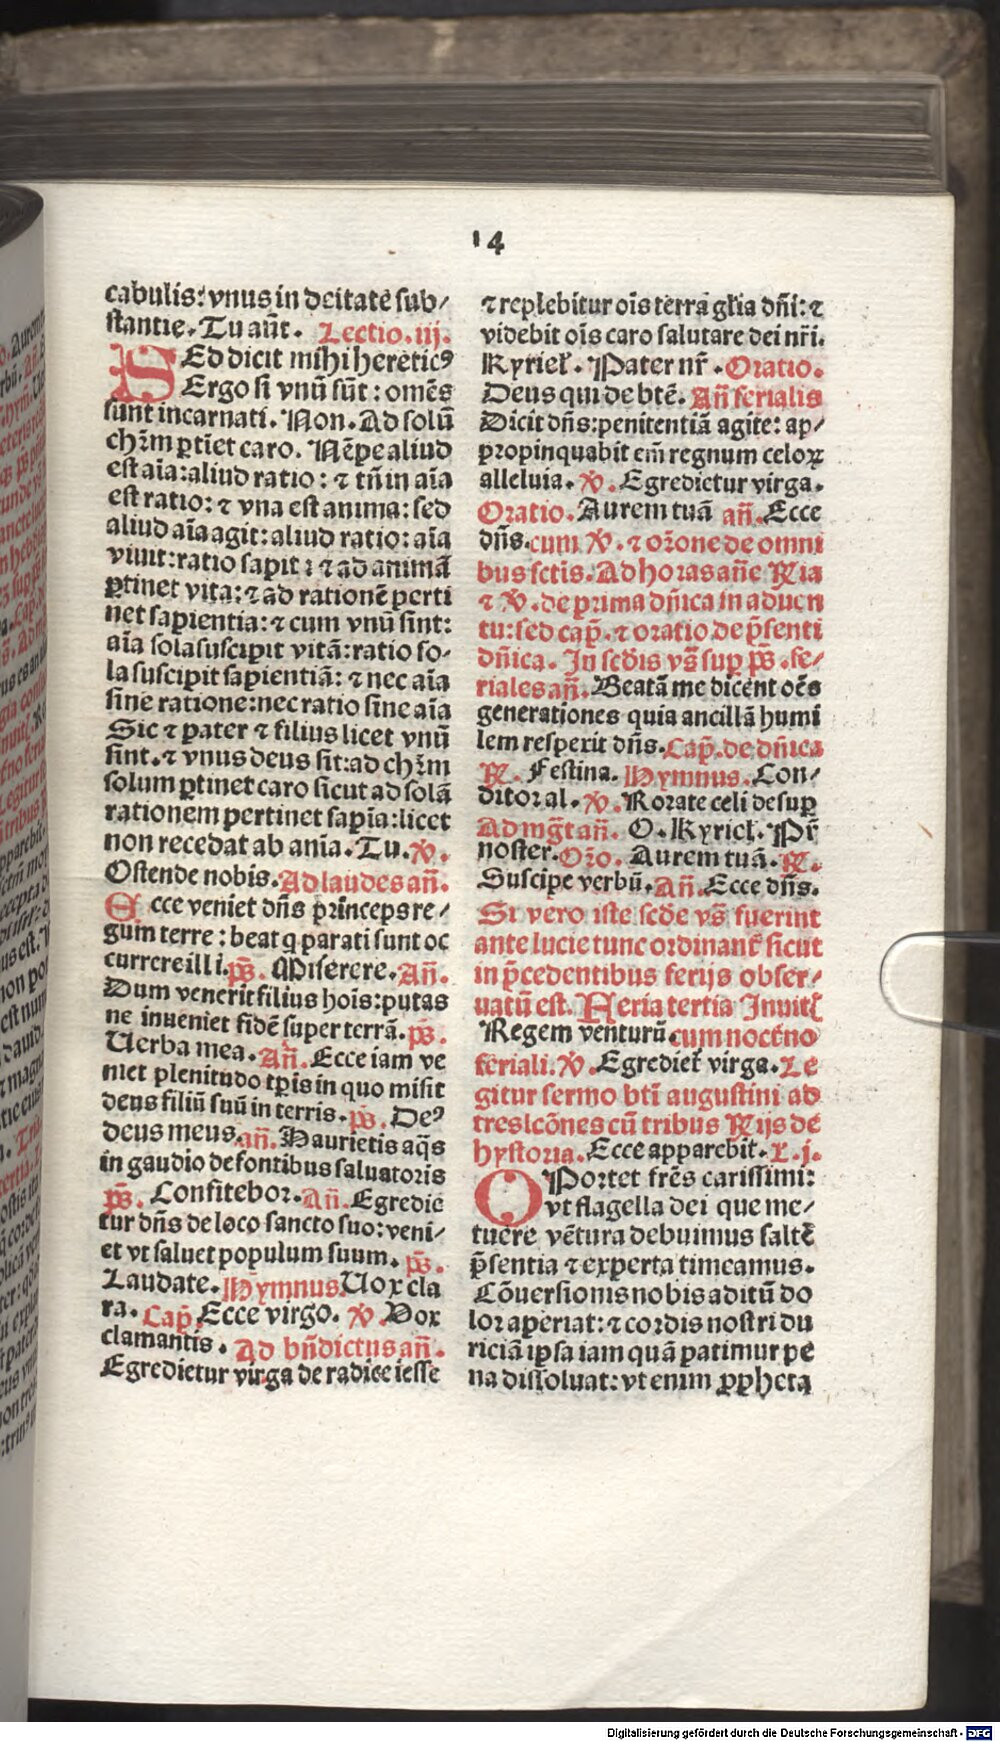 14
cabulis: vnus in deitate sub⸗
stantie. Tu aūt. Lectio. iij.
SEd dicit mihi heretic⁹
Ergo si vnū sūt: omēs
sunt incarnati. Non. Ad solū
chr̄m ꝑtīet caro. Nēpe aliud
est aīa: aliud ratio: ⁊ tn̄ in aīa
est ratio: ⁊ vna est anima: sed
aliud aīa agit: aliud ratio: aīa
viuit: ratio sapit: ⁊ ad animā
ꝑtinet vita: ⁊ ad rationē perti
net sapientia: ⁊ cum vnū sint:
aīa sola suscipit vitā: ratio so⸗
la suscipit sapientiā: ⁊ nec aīa
sine ratione: nec ratio sine aīa
Sic ⁊ pater ⁊ filius licet vnū
sint. ⁊ vnus deus sit: ad chr̄m
solum ꝑtinet caro sicut ad solā
rationem pertinet sapīa: licet
non recedat ab anīa. Tu. ℣.
Ostende nobis. Ad laudes añ.
Ecce veniet dn̄s prīnceps re⸗
gum terre: beat q parati sunt oc
currere illi. ps̄. Miserere. Añ.
Dum venerit filius hoīs: putas
ne inueniet fidē super terrā. ps̄.
Uerba mea. Añ. Ecce iam ve
niet plenitudo tp̄is in quo misit
deus filiū suū in terris. ps̄. De⁹
deus meus. añ. Haurietis aq̄s
in gaudio de fontibus saluatoris
ps̄. Confitebor. Añ. Egredie
tur dn̄s de loco sancto suo: veni⸗
et vt saluet populum suum. ps̄.
Laudate. Hymnus. Uox cla
ra. Cap̄. Ecce virgo. ℣. Vox
clamantis. Ad bn̄dictus añ.
Egredietur virga de radice iesse
⁊ replebitur oīs terra gl̄ia dn̄i: ⁊
videbit oīs caro salutare dei nr̄i.
Kyriel̄. Pater nr̄. Oratio.
Deus qui de btē. Añ ferialis
Dicit dn̄s: penitentiā agite: ap⸗
propinquabit em̄ regnum celoꝝ
alleluia. ℣. Egredietur virga.
Oratio. Aurem tuā añ. Ecce
dn̄s. cum ℣. ⁊ or̄one de omni
bus sctīs. Ad horas añe Ria
⁊ ℣. de prima dn̄ica in aduen
tu: sed cap̄. ⁊ oratio de p̄senti
dn̄ica. In scd̄is vs̄ sup ps̄. fe⸗
riales añ. Beatā me dicent oēs
generationes quia ancillā humi
lem respexit dn̄s. Cap̄. de dn̄ica
℟. Festina. Hymnus. Con⸗
ditor al. ℣. Rorate celi desup
Ad mgt̄ añ. O. Kyriel̄. Pr̄
noster. Or̄o. Aurem tuā. ℟.
Suscipe verbū. Añ. Ecce dn̄s.
Si vero iste scd̄e vs̄ fuerint
ante lucie tunc ordinant᷑ sicut
in p̄cedentibus ferijs obser⸗
uatū est. Feria tertia Inuit᷑
Regem venturū. cum noct᷑no
feriali. ℣. Egrediet᷑ virga. Le
gitur sermo bti᷑ augustini ad
tres lcōnes cū tribus Rijs de
hystoria. Ecce apparebit. L. j.
OPortet frēs carissimi:
vt flagella dei que me⸗
tuere vētura debuimus saltē
p̄sentia ⁊ experta timeamus.
Cōuersionis nobis aditū do
lor aperiat: ⁊ cordis nostri du
riciā ipsa iam quā patimur pe
na dissoluat: vt enim ꝓpheta
Digitalisierung gefördert durch die Deutsche Forschungsgemeinschaft - DFG